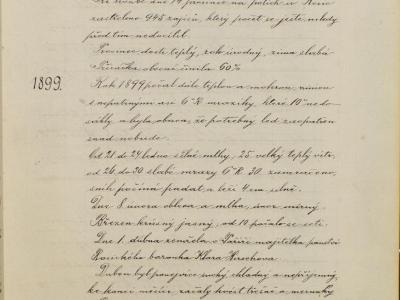 dne 14 prosince na polích v Rosi
zastřeleno 945 zajíců, který počet se ještě nikdy
před tím nedocílil.
Prosinec dosti teplý, rok úrodný, zima slabá
Přirážka obecní činila 60%
1899.
Rok 1899 počal dále teplou a mokrou zimou
s nepatrnými asi 6°R mrazíky, které 10° nedo-
sáhly a byla obava, že potřebný led zaopatřen
snad nebude.
Od 21 do 24 ledna silné mlhy, 25 velký teplý vítr,
od 26 do 30 slabé mrazy 6°R 30 zamrzá ono,
sníh počíná padat a leží 4 cm silně.
Dne 8 února obleva a mlha, únor mírný
Březen krásný jasný, od 10 počalo se seti.
Dne 1. dubna zemřela v Paříži majitelka panství
Rosického baronka Klara Hirschova
Duben byl ponejvíce suchý chladný a nepříjemný,
ke konci měsíce začaly kvést třešně a meruňky